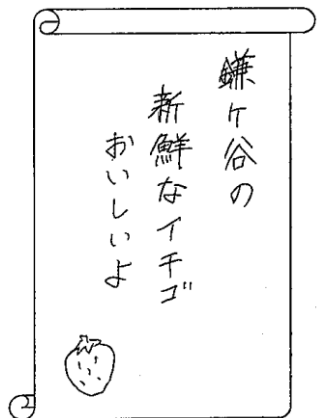 鎌ヶ谷の
新鮮なイチゴ
おいしいよ